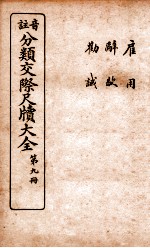 雇用
辭故
勸誡
音註
分類交際尺牘大全
第九冊